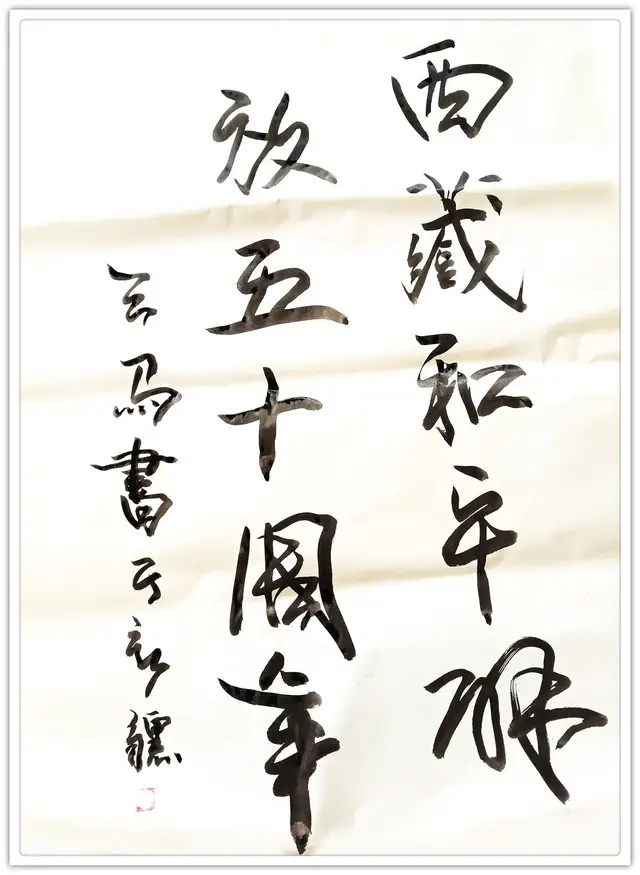 西藏和平解
放五十周年
云馬書于新疆